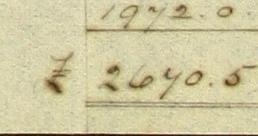 1972.0.
£ 2670.5